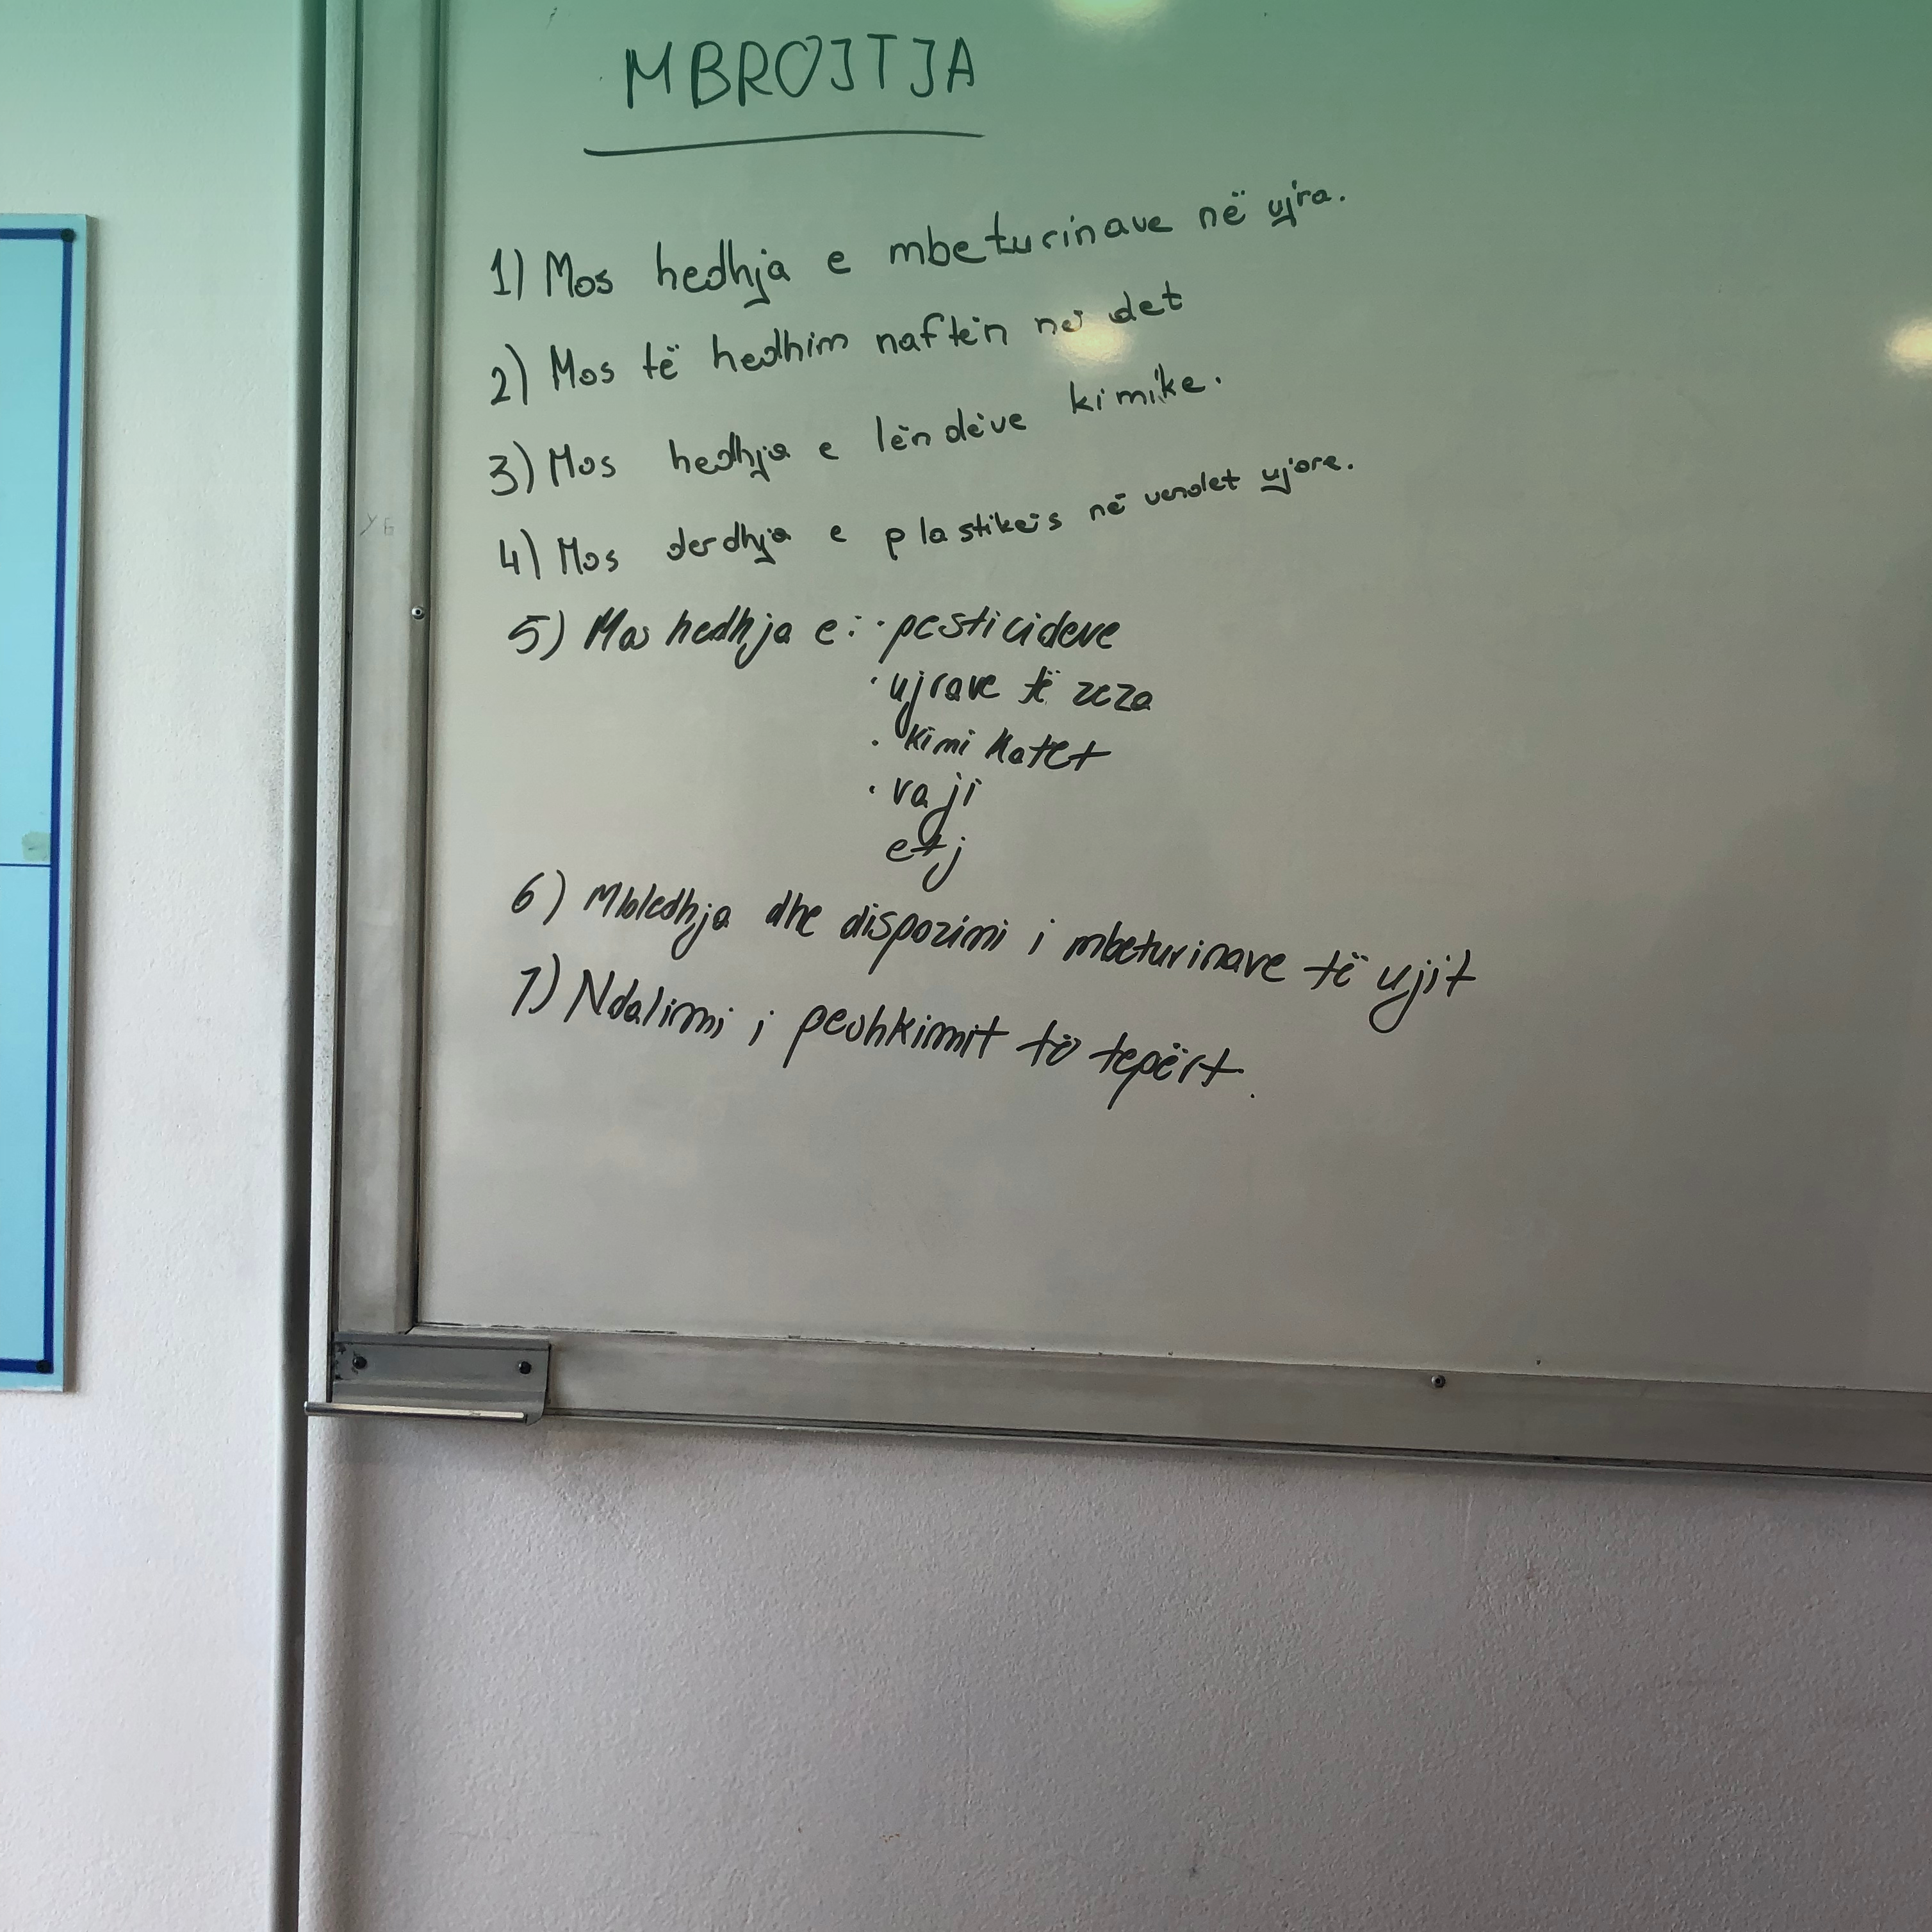 MBROJTJA
1) Mos hedhja e mbeturinave në ujra.
2) Mos të hedhim naftën në det
3) Mos hedhja e lëndëve kimike.
4) Mos derdhja e plastikës në vendet ujore.
5) Mos hedhja e: · pesticideve
· ujrave të zeza
· kimikatet
· vaji
etj
6) Mbledhja dhe dispozimi i mbeturinave të ujit
7) Ndalimi i peshkimit të tepërt.